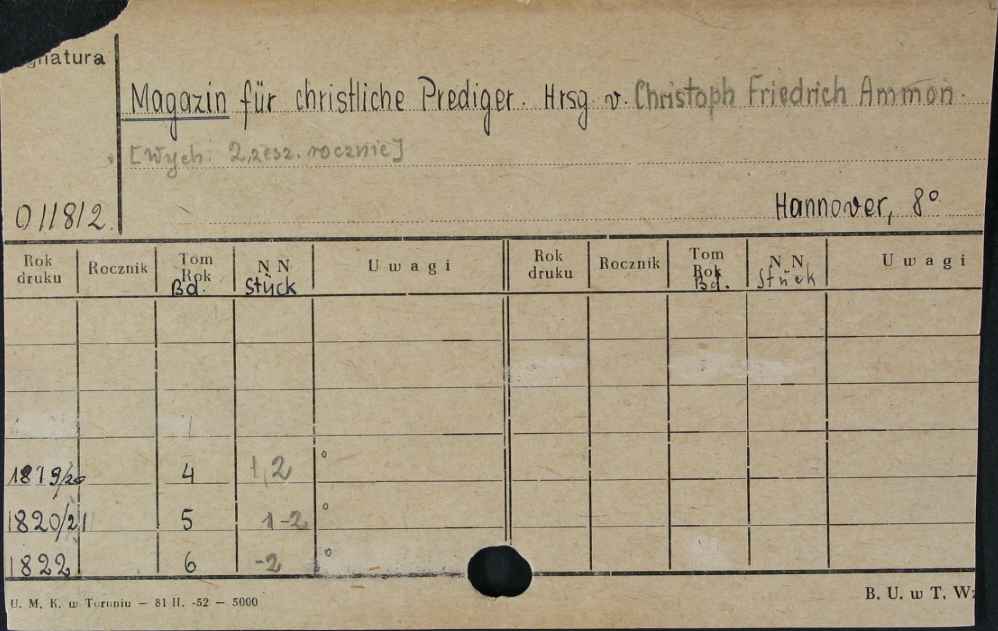 gnatura
Magazin für christliche Prediger. Hrsg v. Christoph Friedrich Ammon.
[Wych: 2 zesz. rocznie]
011812.
Hannover, 8°
Rok druku Rocznik Tom Rok Bd. NN Stück Uwagi Rok druku Rocznik Tom Rok Bd. NN Stück Uwagi
1819/20 4 1,2 °
1820/21 5 1-2 °
1822 6 -2 °
U. M. K. w Toruniu — 81 II. -52 — 5000
B. U. w T. Wz